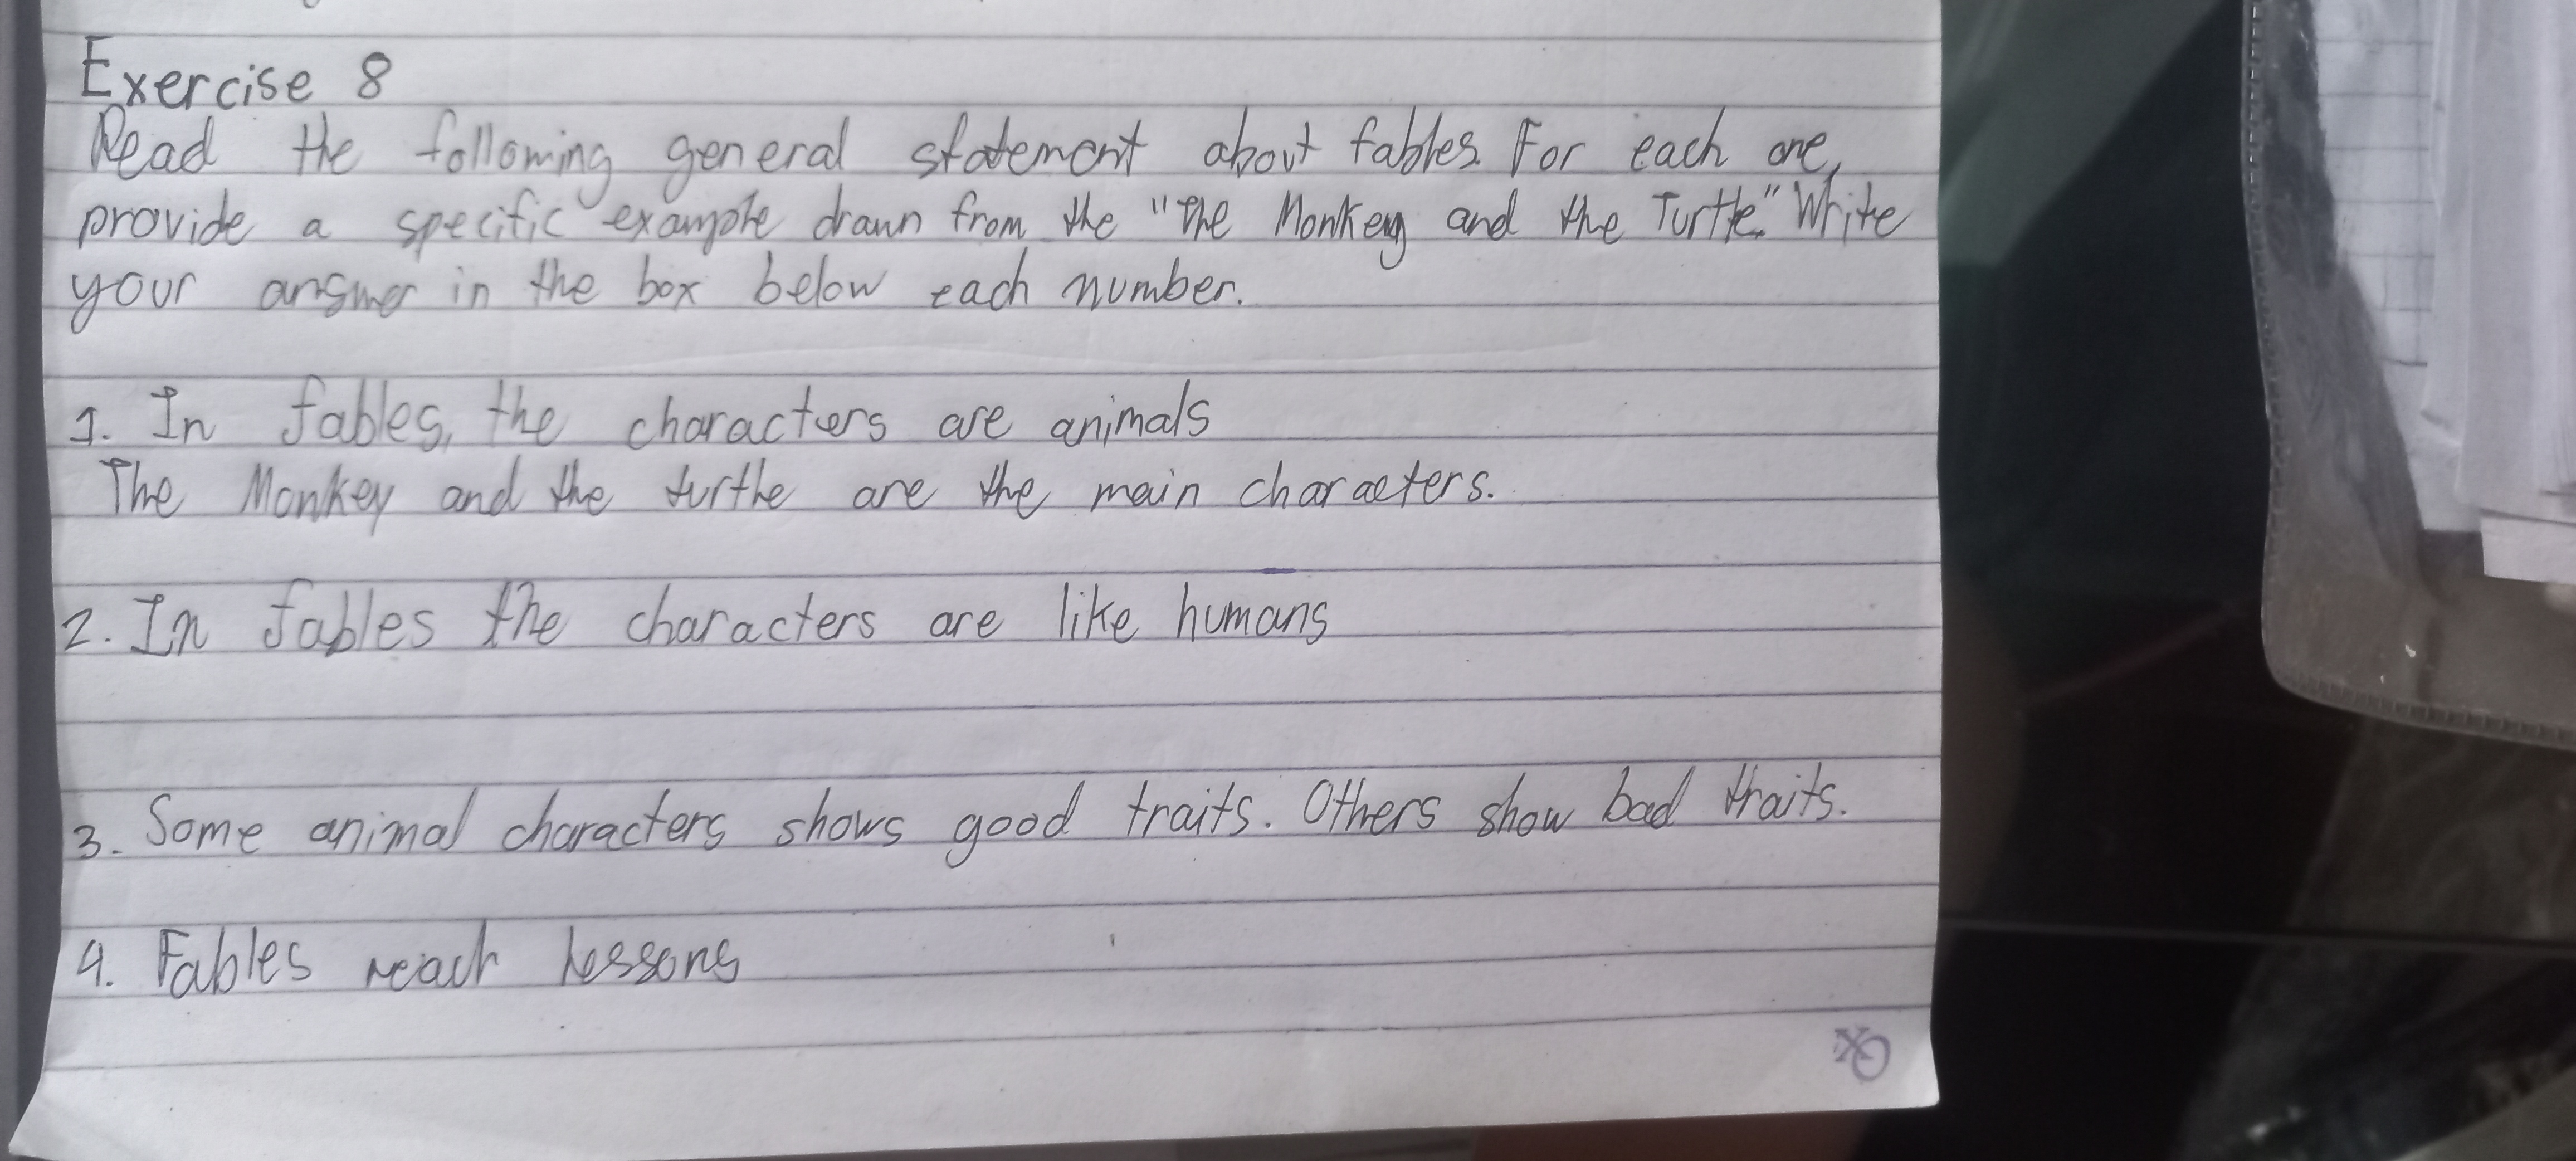 Exercise 8
Read the following general statement about fables. For each one,
provide a specific example drawn from the "The Monkey and the Turtle." Write
your answer in the box below each number.
1. In fables, the characters are animals
The Monkey and the turtle are the main characters.
2. In fables the characters are like humans
3. Some animal characters shows good traits. Others show bad traits.
4. Fables reach lessons